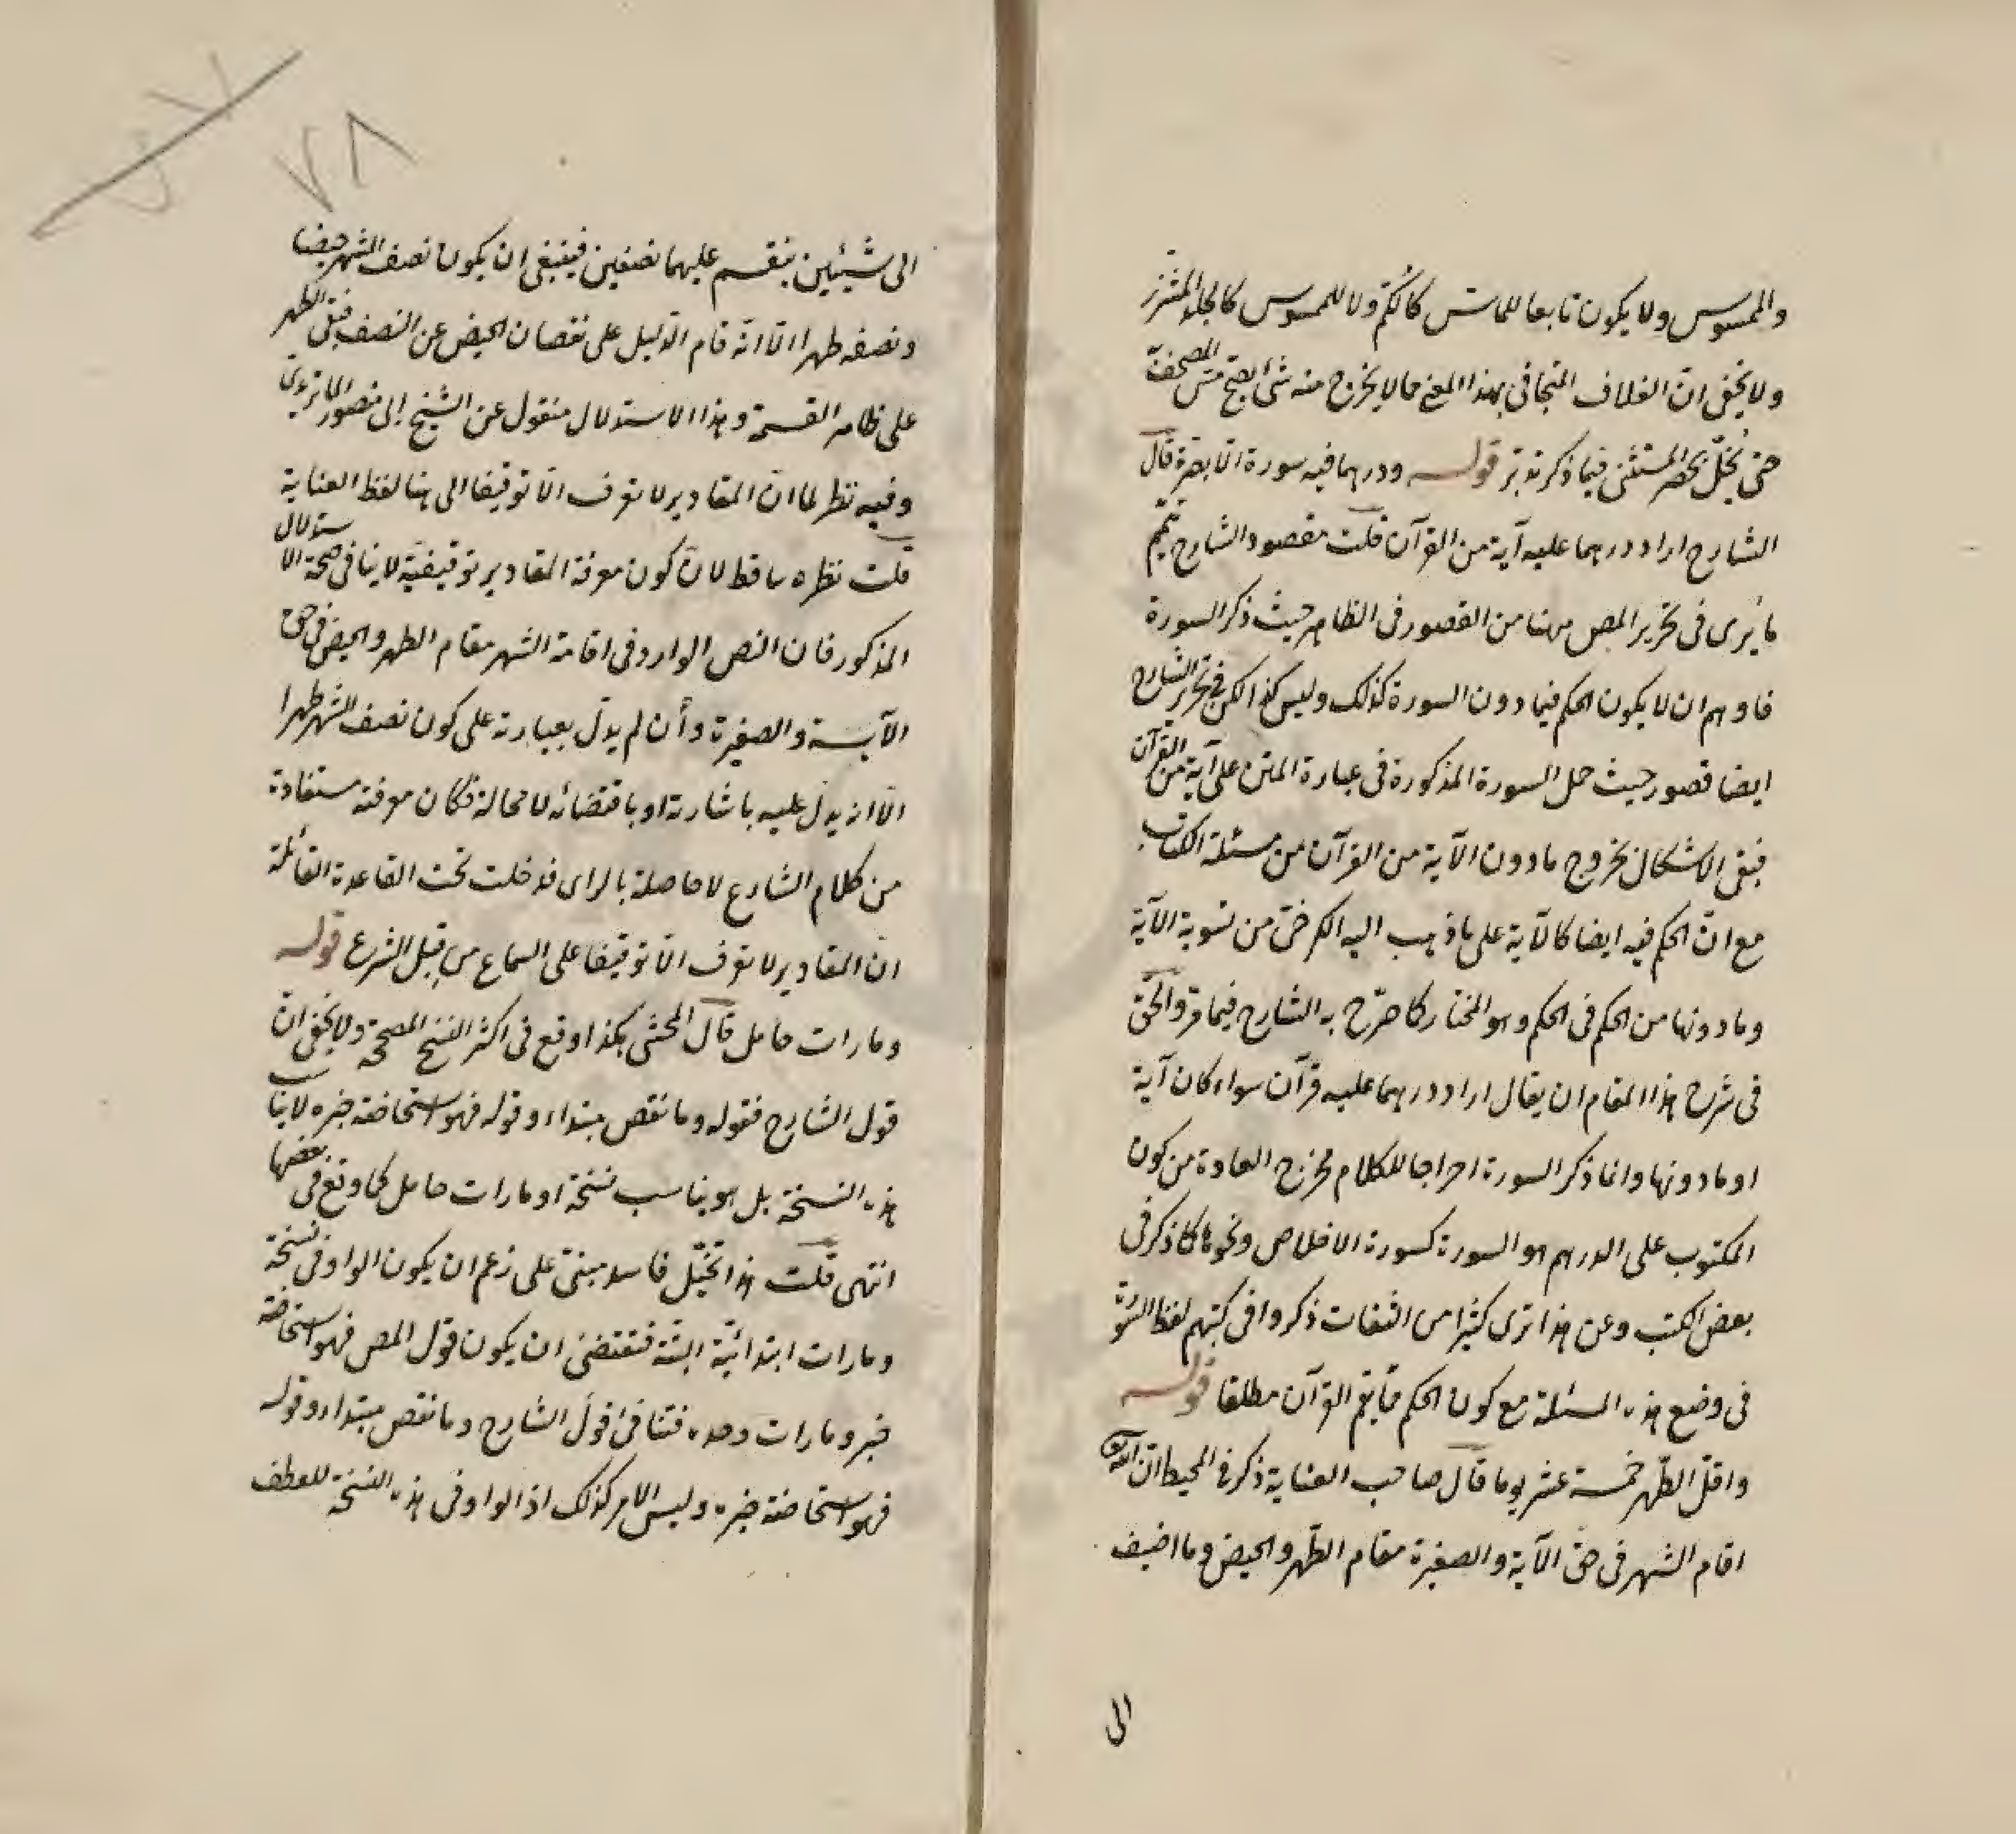 والممسوس ولا يكون تابعا للماسّ كالكُمّ ولا للممسوس كالجلد المشرّز
ولا يخفى انّ الغلاف المتجافى بهذا المعنى مما لا يخرج منه شئ يصحّ مسّ المصحف
حتى يُخلّ بحصر المستثنى فيما ذكر تدبر قوله ودرهما فيه سورة الا بصرة قال
الشارح اراد درهما عليه آية من القرآن قلت مقصود الشارح تتميم
ما يُرى فى تحرير المص ههنا من القصور فى الظاهر حيث ذكر السورة
فاوهم ان لا يكون الحكم فيما دون السورة كذلك وليس كذا لكن فى تحرير الشارح
ايضا قصور حيث حمل السورة المذكورة فى عبارة المتن على آية من القرآن
فبقى الاشكال بخروج ما دون الآية من القرآن من مسئلة الكتاب
مع انّ الحكم فيه ايضا كالآية على ما ذهب اليه الكرخىّ من تسوية الآية
وما دونها من الحكم فى الحكم وهو المختار كما صرّح به الشارح فيما مرّ والحقّ
فى شرح هذا المقام ان يقال اراد درهما عليه قرآن سواء كان آية
او ما دونها وانما ذكر السورة اخراجا للكلام مخرج العادة من كون
المكتوب على الدرهم هو السورة كسورة الاخلاص ونحوها كما ذكر فى
بعض الكتب وعن هذا ترى كثيرا من الثقات ذكروا فى كتبهم لفظ السورة
فى وضع هذه المسئلة مع كون الحكم مما يعمّ القرآن مطلقا قوله
واقلّ الطّهر خمسة عشر يوما قال صاحب العناية ذكر فى المحيط انّ اللّه تع
اقام الشهر فى حقّ الآية والصغيرة مقام الطّهر والحيض وما اضيف
الى
٧٨
الى شيئين ينقسم عليهما نصفين فينبغى ان يكون نصف الشهر حيضا
ونصفه طهرا الّا انّه قام الدّليل على نقصان الحيض عن النصف فبقى الطهر
على ظاهر القسمة وهذا الاستدلال منقول عن الشيخ ابى منصور الماتريدى
وفيه نظر لما انّ المقادير لا تعرف الّا توقيفا الى هنا لفظ العناية
قلت نظره ساقط لانّ كون معرفة المقادير توقيفيّة لا ينافى صحة الاستدلال
المذكور فان النص الوارد فى اقامة الشهر مقام الطهر والحيض فى حق
الآيسة والصغيرة وأن لم يدلّ بعبارته على كون نصف الشهر طهرا
الّا انه يدلّ عليه باشارته او باقتضائه لا محالة فكان معرفته مستفادة
من كلام الشارع لا حاصلة بالراى فدخلت تحت القاعدة القائلة
انّ المقادير لا تعرف الّا توقيفا على السماع من قِبل الشرع قوله
وما رات حامل قال المحشى هكذا وقع فى اكثر النسخ المصححة ولا يخفى انّ
قول الشارح فقوله وما نقص مبتداء وقوله فهو استحاضة خبره لا يناسب
هذه النسخة بل هو يناسب نسخة او ما رات حامل كما وقع فى بعضها
انتهى قلت هذا تخيّل فاسد مبنىّ على زعم ان يكون الواو فى نسخة
وما رات ابتدائيّة البتّة فتقتضى ان يكون قول المص فهو استحاضة
خبر وما رات وحده فتنافى قول الشارح وما نقص مبتداء وقوله
فهو استحاضة خبره وليس الامر كذلك اذ الواو فى هذه النسخة للعطف